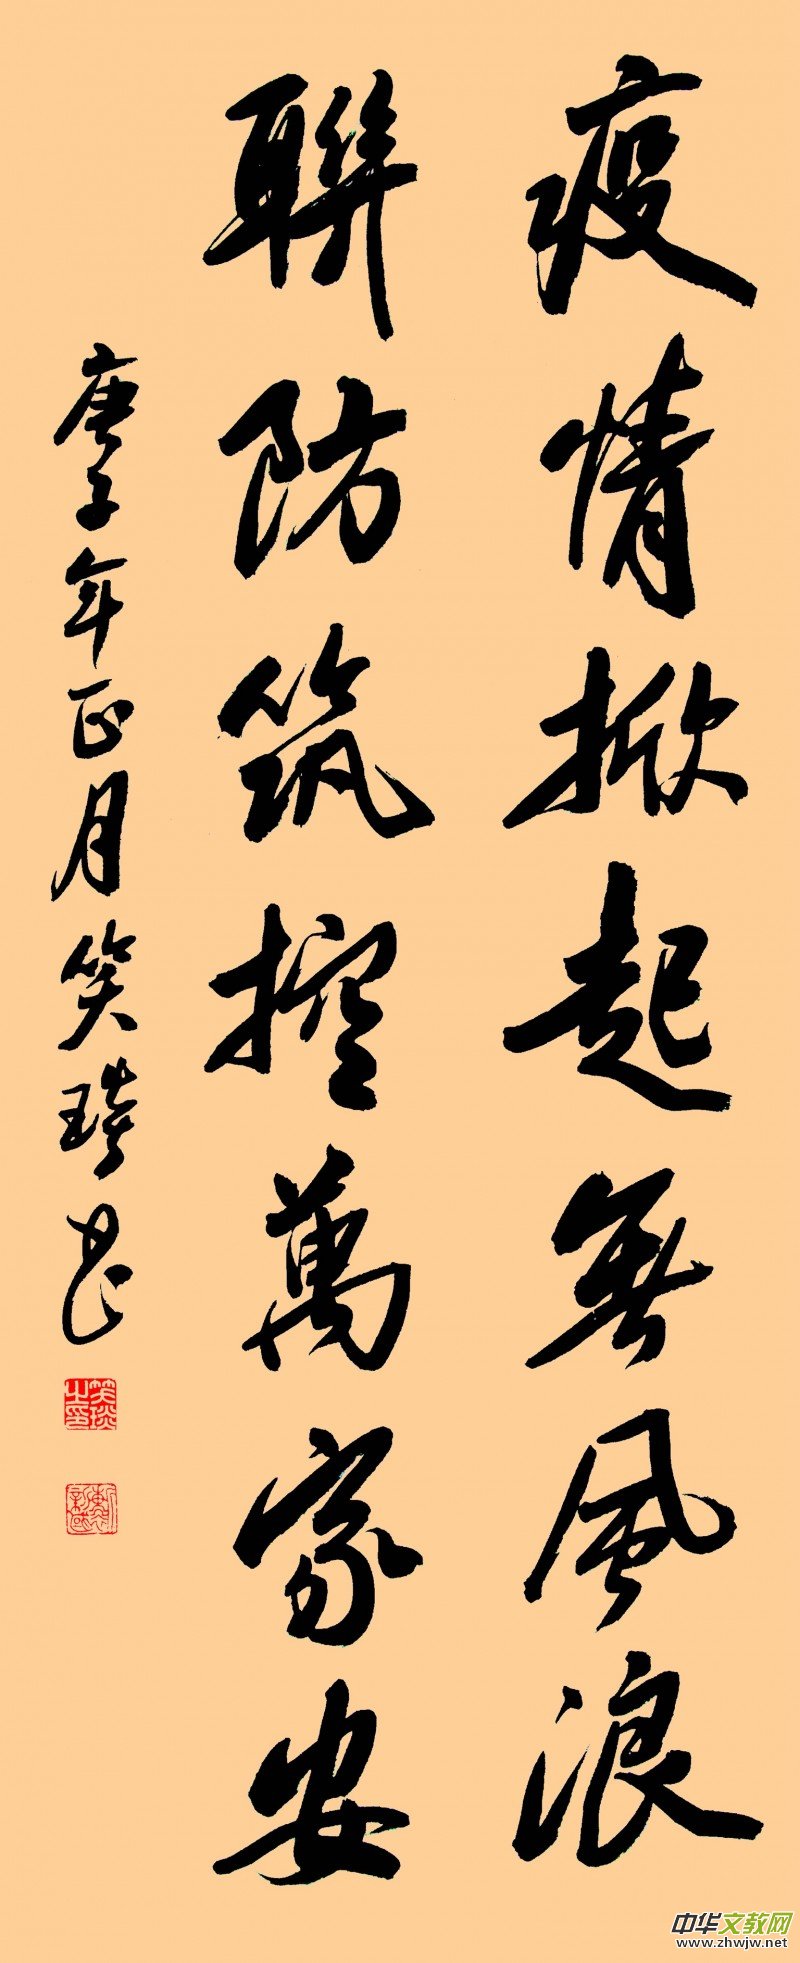 疫情掀起無風浪
聯防筑控萬家安
庚子年正月笑琰書
笑琰之印
中华文教网
www.zhwjw.net